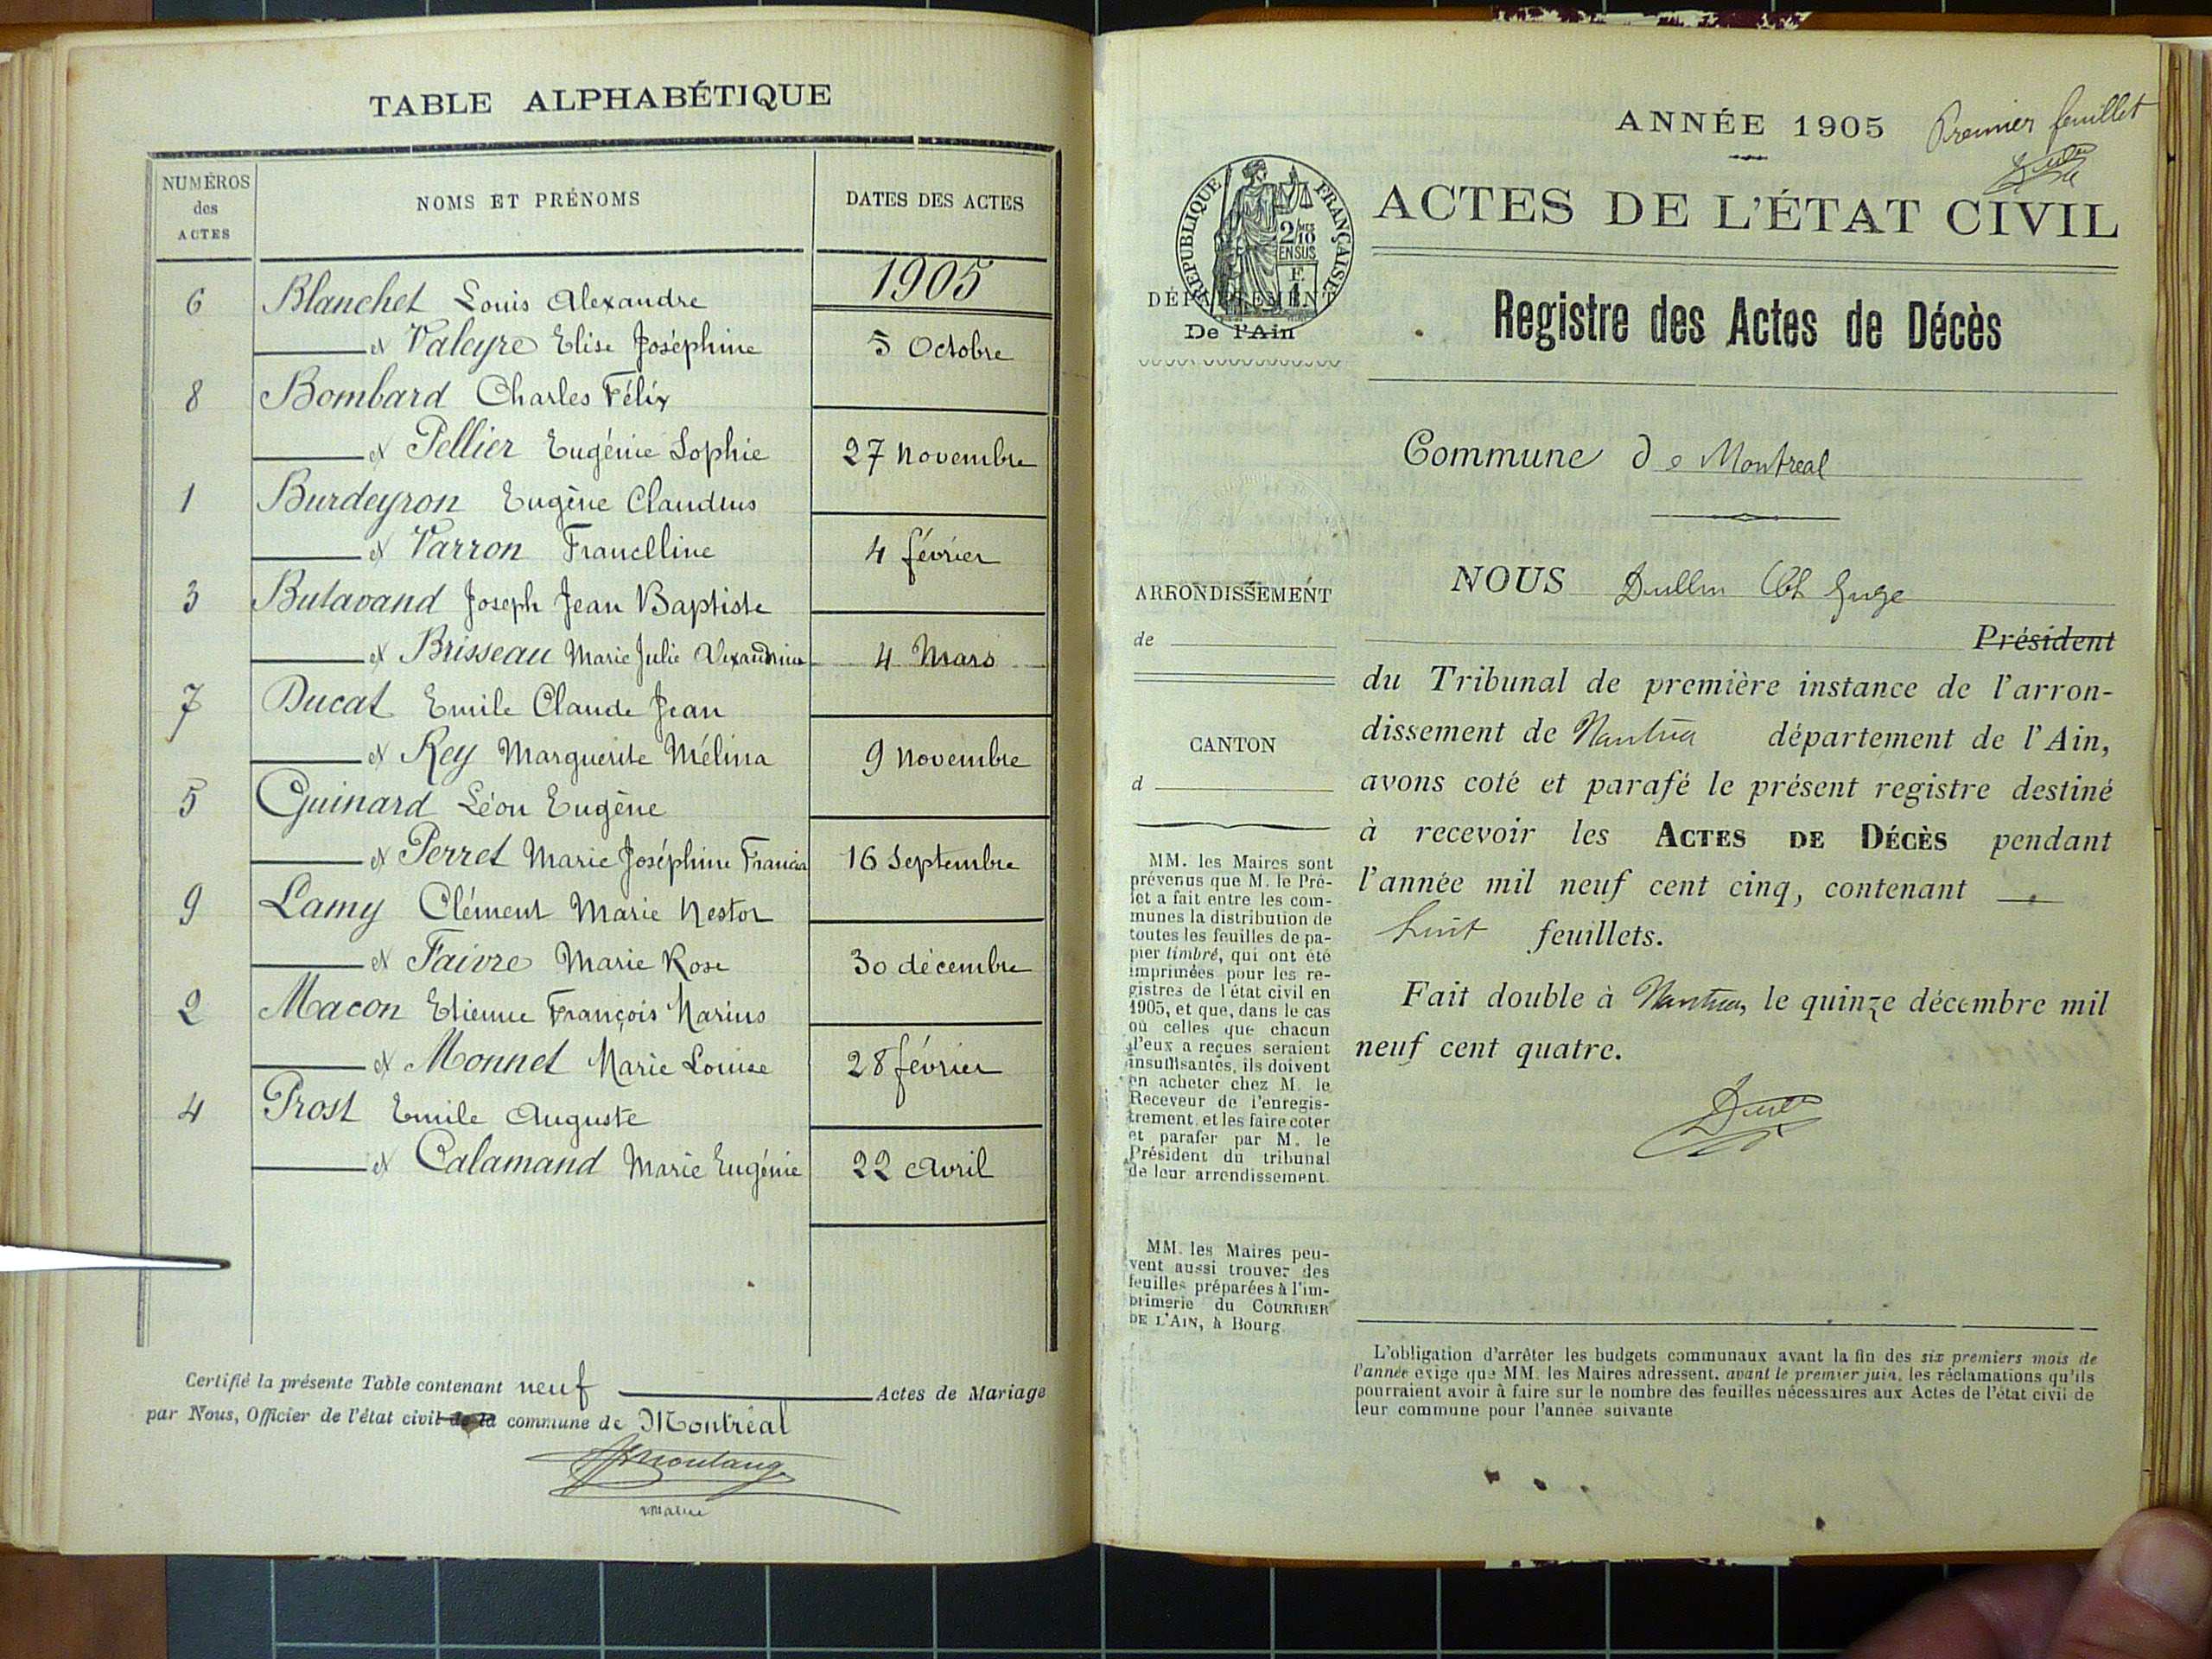 TABLE ALPHABÉTIQUE
NUMÉROS
des
ACTES
NOMS ET PRÉNOMS
DATES DES ACTES
1905
6 Blanchet Louis Alexandre
et Valeyre Elise Joséphine 5 Octobre
8 Bombard Charles Félix
et Pellier Eugénie Sophie 27 Novembre
1 Burdeyron Eugène Claudius
et Varron Francelline 4 février
3 Butavand Joseph Jean Baptiste
et Brisseau Marie Julie Alexandrine 4 Mars
7 Ducat Emile Claude Jean
et Rey Marguerite Mélina 9 Novembre
5 Guinard Léon Eugène
et Perret Marie Joséphine Francia 16 Septembre
9 Lamy Clément Marie Nestor
et Faivre Marie Rose 30 décembre
2 Macon Etienne François Marius
et Monnet Marie Louise 28 février
4 Prost Emile Auguste
et Calamand Marie Eugénie 22 Avril
Certifié la présente Table contenant neuf Actes de Mariage
par Nous, Officier de l'état civil de la commune de Montréal
maire
ANNÉE 1905
Premier feuillet
RÉPUBLIQUE FRANÇAISE
2/10
MES
EN SUS
ACTES DE L'ÉTAT CIVIL
DÉPARTEMENT
De l'Ain
Registre des Actes de Décès
Commune de Montreal
ARRONDISSEMENT
de
CANTON
d
MM. les Maires sont
prévenus que M. le Pré-
fet a fait entre les com-
munes la distribution de
toutes les feuilles de pa-
pier timbré, qui ont été
imprimées pour les re-
gistres de l'état civil en
1905, et que, dans le cas
où celles que chacun
d'eux a reçues seraient
insuffisantes, ils doivent
en acheter chez M. le
Receveur de l'enregis-
trement, et les faire coter
et parafer par M. le
Président du tribunal
de leur arrondissement.
MM. les Maires peu-
vent aussi trouver des
feuilles préparées à l'im-
primerie du COURRIER
DE L'AIN, à Bourg
NOUS Dullin Juge
Président
du Tribunal de première instance de l'arron-
dissement de Nantua département de l'Ain,
avons coté et parafé le présent registre destiné
à recevoir les ACTES DE DÉCÈS pendant
l'année mil neuf cent cinq, contenant
huit feuillets.
Fait double à Nantua, le quinze décembre mil
neuf cent quatre.
L'obligation d'arrêter les budgets communaux avant la fin des six premiers mois de
l'année exige que MM. les Maires adressent, avant le premier juin, les réclamations qu'ils
pourraient avoir à faire sur le nombre des feuilles nécessaires aux Actes de l'état civil de
leur commune pour l'année suivante